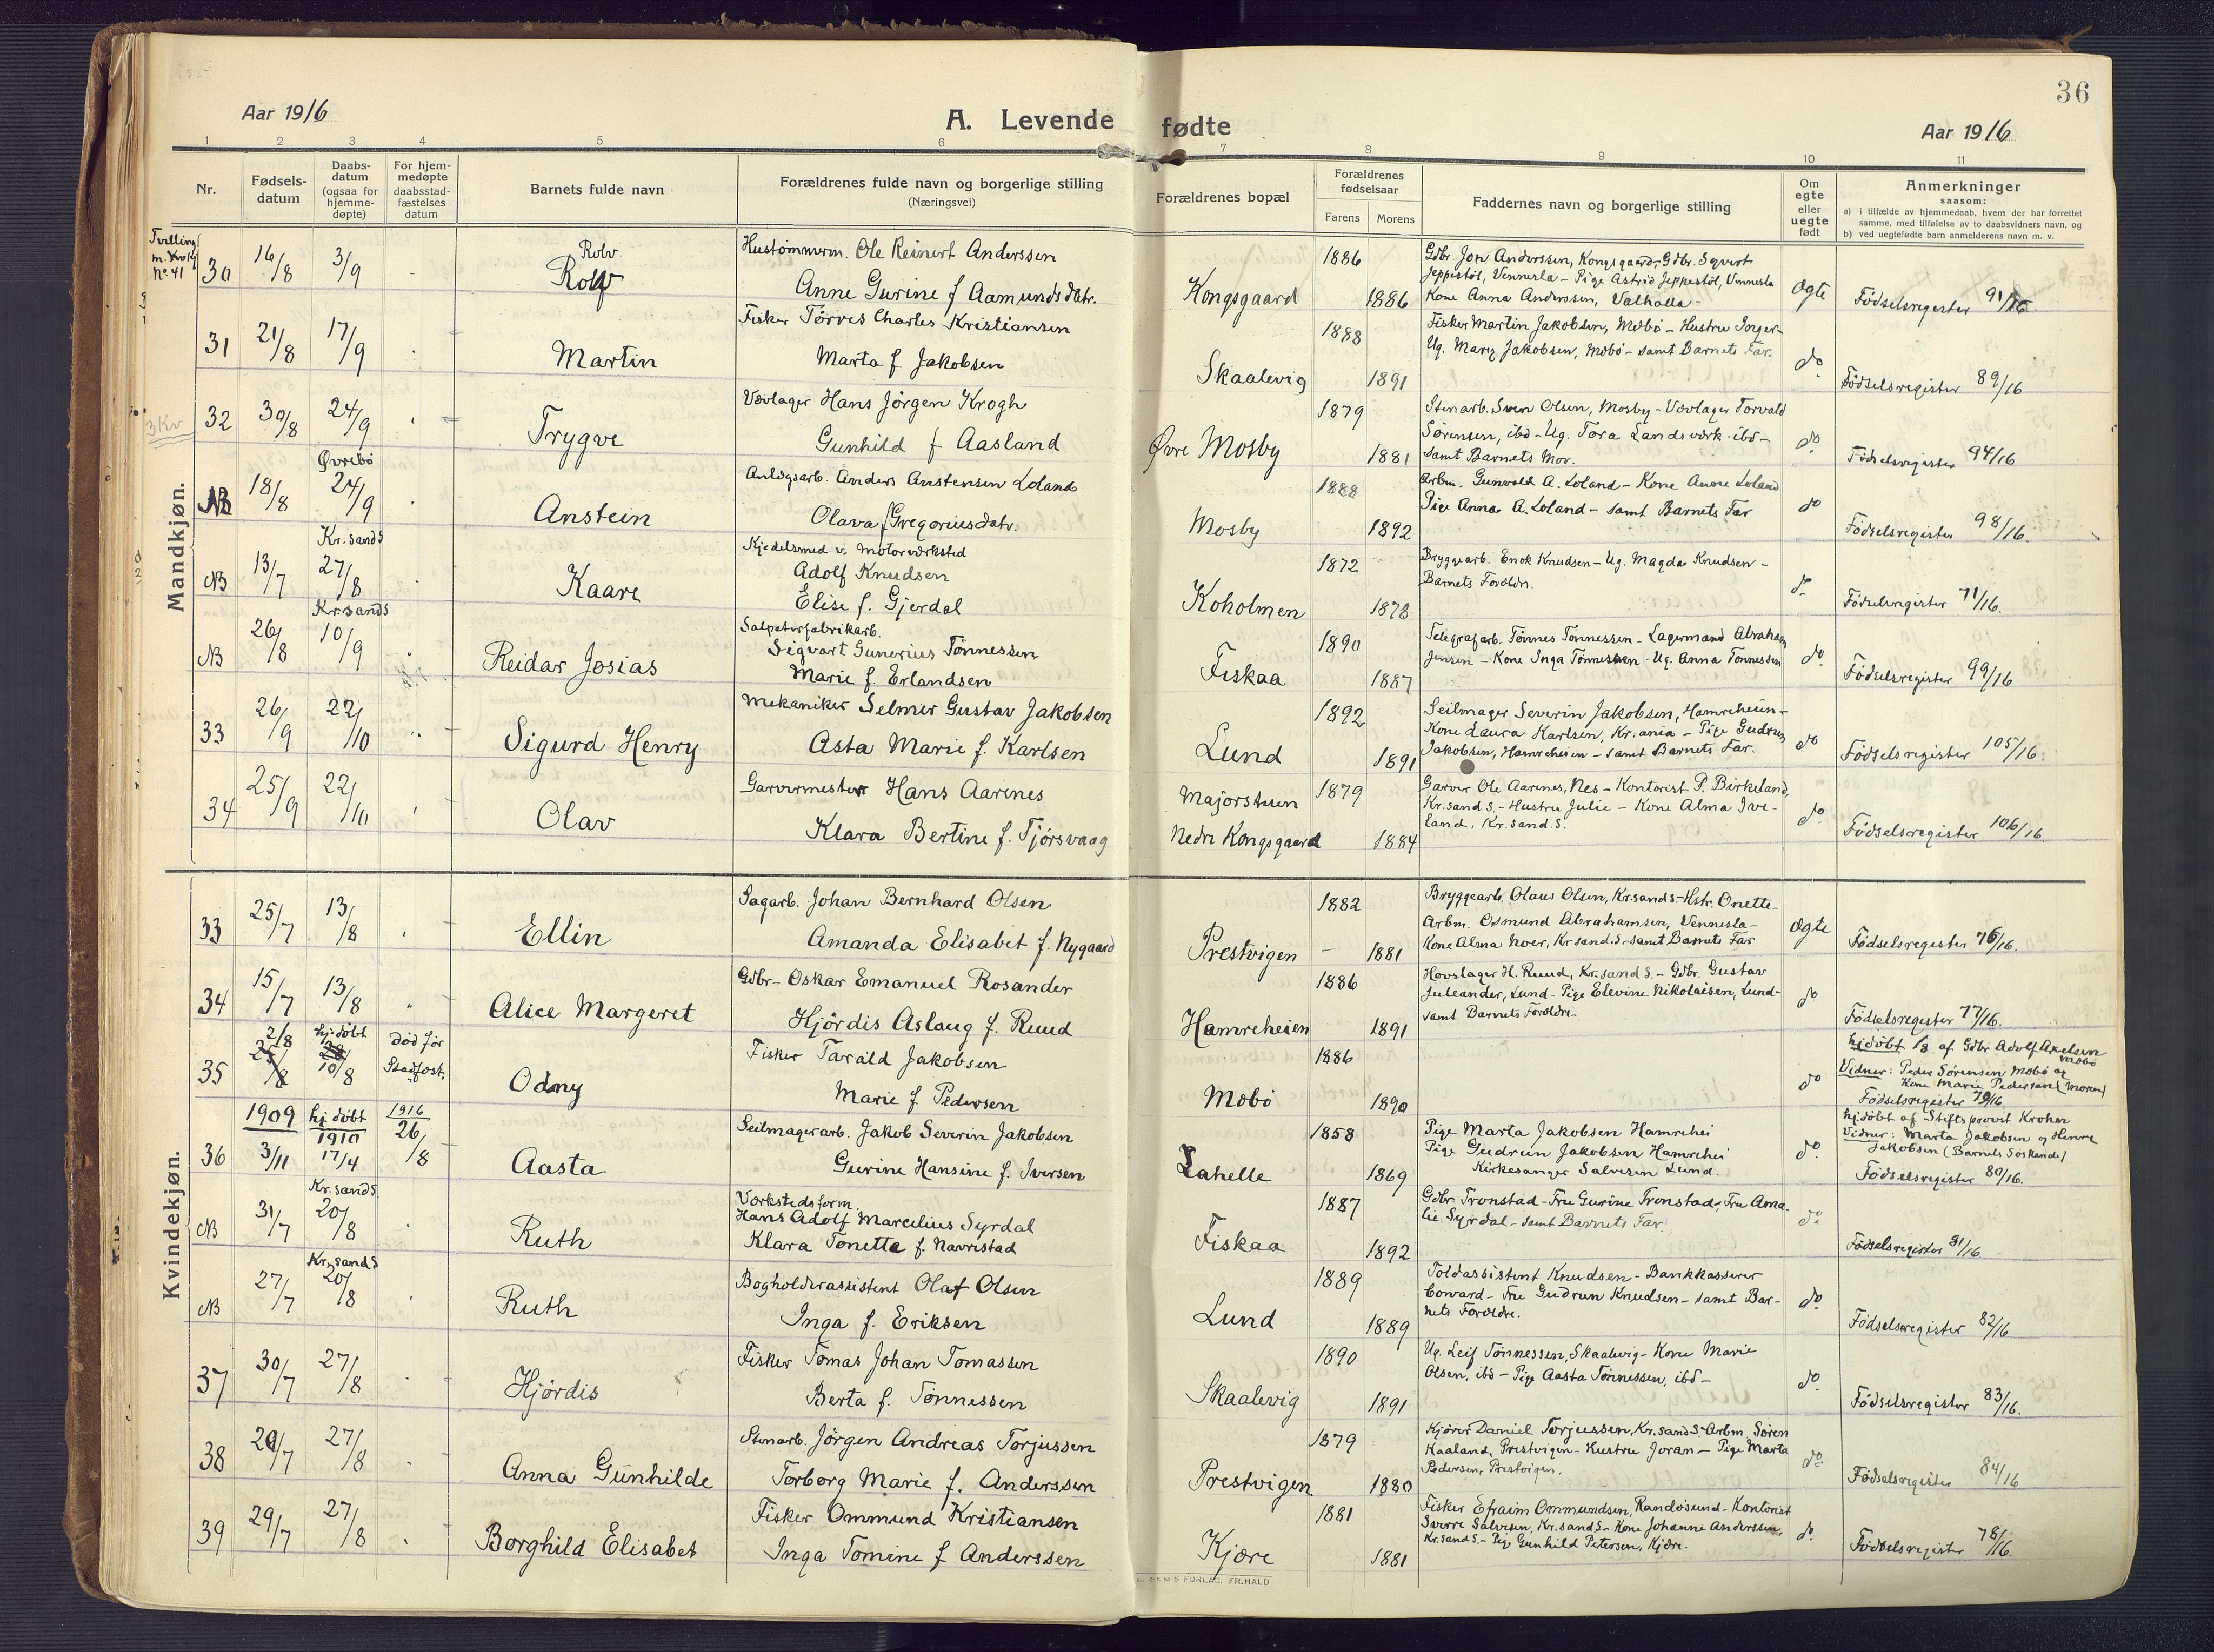 36
Aar 1916
A. Levende fødte
Aar 1916
1 2 3 4 5 6 7 8 9 10 11
Nr.
Fødsels-
datum
Daabs-
datum
(ogsaa for
hjemme-
døpte)
For hjem-
medøpte
daabsstad-
fæstelses
datum
Barnets fulde navn
Forældrenes fulde navn og borgerlige stilling
(Næringsvei)
Forældrenes bopæl
Forældrenes
fødselsaar
Farens Morens
Faddernes navn og borgerlige stilling
Om
egte
eller
uegte
født
Anmerkninger
saasom:
a) i tilfælde av hjemmedaab, hvem der har forrettet
samme, med tilføielse av to daabsvidners navn, og
b) ved uegtefødte barn anmelderens navn m. v.
Mandkjøn.
Tvilling
No 41
30 16/8 3/9
Rolv.
Rolf
Hustømmerm. Ole Reinert Anderssen
Anne Gurine f Aamundsdatr.
Kongsgaard 1886 1886
Gdbr. Jon Anderssen, Kongsgaard, Gdbr. Sqvert
Jeppestøl, Vennesla - Pige Astrid Jeppestøl, Vennesla
Kone Anna Anderssen, Valhalla -
ægte
Fødselsregister 91/16
31 21/8 17/9
Martin
Fisker Tørres Charles Kristiansen
Marta f Jakobsen
Skaalevig 1888 1891
Fisker Martin Jakobsen, Mæbø - Hustru Inger-
Ug. Mary Jakobsen, Mæbø - samt Barnets Far.
do
Fødselsregister 89/16
3 Kv
32 30/8 24/9
Trygve
Vævlager Hans Jørgen Krogh
Gunhild f Aasland
Øvre Mosby 1879 1881
Stenarb. Sven Olsen, Mosby - Vævlager Torvald
Sørensen, ibd - Ug. Tora Landsværk ibd -
samt Barnets Mor.
do
Fødselsregister 94/16
Øvrebø
NB 18/8 24/9
Anstein
Anlægsarb. Anders Anstensen Loland
Olava f Gregoriusdatr.
Mosby 1888 1892
Arbm. Gunvald A. Loland - Kone Anne Loland
Pige Anna A. Loland - samt Barnets Far
do
Fødselsregister 98/16.
Kr.sand S
NB 13/7 27/8
Kaare
Kjedelsmed v. Motorværksted
Adolf Knudsen
Elise f. Gjerdal
Koholmen 1872 1878
Bryggearb. Enok Knudsen - Ug. Magda Knudsen -
Barnets Foreldr.
do
Fødselsregister 71/16.
Kr.sand S
NB 26/8 10/9
Reidar Josias
Salpeterfabrikarb.
Sigvart Gunerius Tønnessen
Marie f. Erlandsen
Fiskaa 1890 1887
Telegrafarb. Tønnes Tønnessen - Lagermand Abraham
Jensen - Kone Inga Tønnessen - Ug. Anna Tønnessen
do
Fødselsregister 99/16
33 26/9 22/10
Sigurd Henry
Mekaniker Selmer Gustav Jakobsen
Asta Marie f. Karlsen
Lund 1892 1891
Seilmager Severin Jakobsen, Hamreheien -
Kone Laura Karlsen, Kr.ania - Pige Gudrun
Jakobsen, Hamreheien - samt Barnets Far.
do
Fødselsregister 105/16.
34 25/9 22/10
Olav
Garvermester Hans Aarenes
Klara Bertine f. Tjørsvaag
Majorstuen
Nedre Kongsgaard 1879 1884
Garver Ole Aarenes, Nes - Kontorist P. Birkeland,
Kr.sand S. - Hustru Julie - Kone Alma Ive-
land, Kr.sand. S.
do
Fødselsregister 106/16.
Kvindekjøn.
33 25/7 13/8
Ellin
Sagarb. Johan Bernhard Olsen
Amanda Elisabet f. Nygaard
Prestvigen 1882 1881
Bryggearb. Olaus Olsen, Kr.sand S - Hstr. Onette -
Arbm. Osmund Abrahamsen, Vennesla -
Kone Alma Noer, Kr.sand. S. samt Barnets Far
ægte
Fødselsregister 76/16.
34 15/7 13/8
Alice Margeret
Gdbr - Oskar Emanuel Rosander
Hjørdis Aslaug f. Ruud
Hamreheien 1886 1891
Hovslager H. Ruud, Kr.sand S. - Gdbr. Gustav
Juleander, Lund - Pige Elevine Nikolaisen, Lund -
samt Barnets Foreldre.
do
Fødselsregister 77/16.
35 2/8 hj.døbt 10/8 død før Stadfest.
Odny
Fisker Tarald Jakobsen
Marie f Pedersen
Mæbø 1886 1890
do
hj.døbt af Gdbr Adolf Axelsen
Mæbø
Vidner: Peder Sørensen Mæbø og
Kone Marie Pedersen (Moren)
Fødselsregister 79/16
36 1909 3/11 hj.døbt 1910 17/4 1916 26/8
Aasta
Seilmagerarb. Jakob Severin Jakobsen
Gurine Hansine f. Iversen
Lahelle 1858 1869
Pige Marta Jakobsen Hamrehei
Pige Gudrun Jakobsen Hamrehei
Kirkesanger Salvesen Lund.
do
hj.døbt af Stiftsprovst Krohen
Vidner: Marta Jakobsen og Henry
Jakobsen (Barnets Søskende)
Fødselsregister 80/16.
Kr.sand S.
NB 31/7 20/8
Ruth
Værkstedsform.
Hans Adolf Marcelius Syrdal
Klara Tonette f. Navrestad
Fiskaa 1887 1892
Gdbr Tronstad - Fru Gurine Tronstad, Fru Ama-
lie Syrdal - samt Barnets Far
do
Fødselsregister 81/16
Kr.sand S
NB 27/7 20/8
Ruth
Bogholderassistent Olaf Olsen
Inga f. Eriksen
Lund 1889 1889
Toldassistent Knudsen - Bankkasserer
Coward - Fru Gudrun Knudsen - samt Bar-
nets Foreldre.
do
Fødselsregister 82/16
37 30/7 27/8
Hjørdis
Fisker Tomas Johan Tomassen
Berta f. Tønnessen
Skaalevig 1890 1891
Ug. Leif Tønnessen, Skaalevig - Kone Marie
Olsen, ibd - Pige Aasta Tønnessen, ibd -
do
Fødselsregister 83/16.
38 29/7 27/8
Anna Gunhilde
Stenarb. Jørgen Andreas Torjussen
Torborg Marie f. Anderssen
Prestvigen 1879 1880
Kjører Daniel Torjussen, Kr.sand S - Arbm. Søren
Kaaland, Prestvigen - Hustru Joran - Pige Marta
Pedersen, Prestvigen.
do
Fødselsregister 84/16
39 29/7 27/8
Borghild Elisabet
Fisker Ommund Kristiansen
Inga Tomine f Anderssen
Kjære 1881 1881
Fisker Efraim Ommundsen, Randøsund - Kontorist
Sverre Salvesen, Kr.sand S - Kone Johanne Anderssen,
Kr.sand S. - Pige Gunhild Petersen, Kjære.
do
Fødselsregister 78/16.
SEM'S FORLAG, FR.HALD